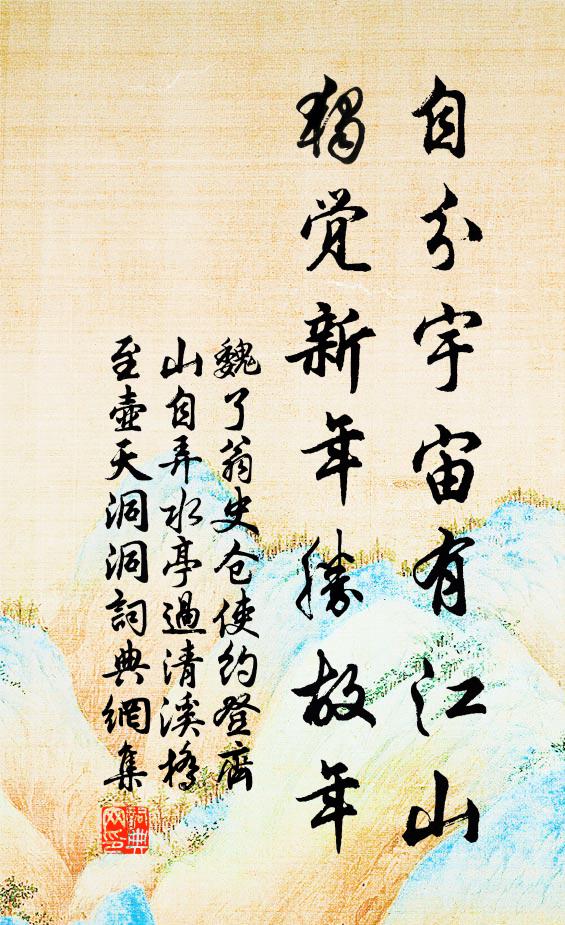 自分宇宙有江山
獨覺新年勝故年
魏了翁史仓使约登齊
山自弄水亭過清溪橋
至壺天洞洞詞典網集
詞典網印